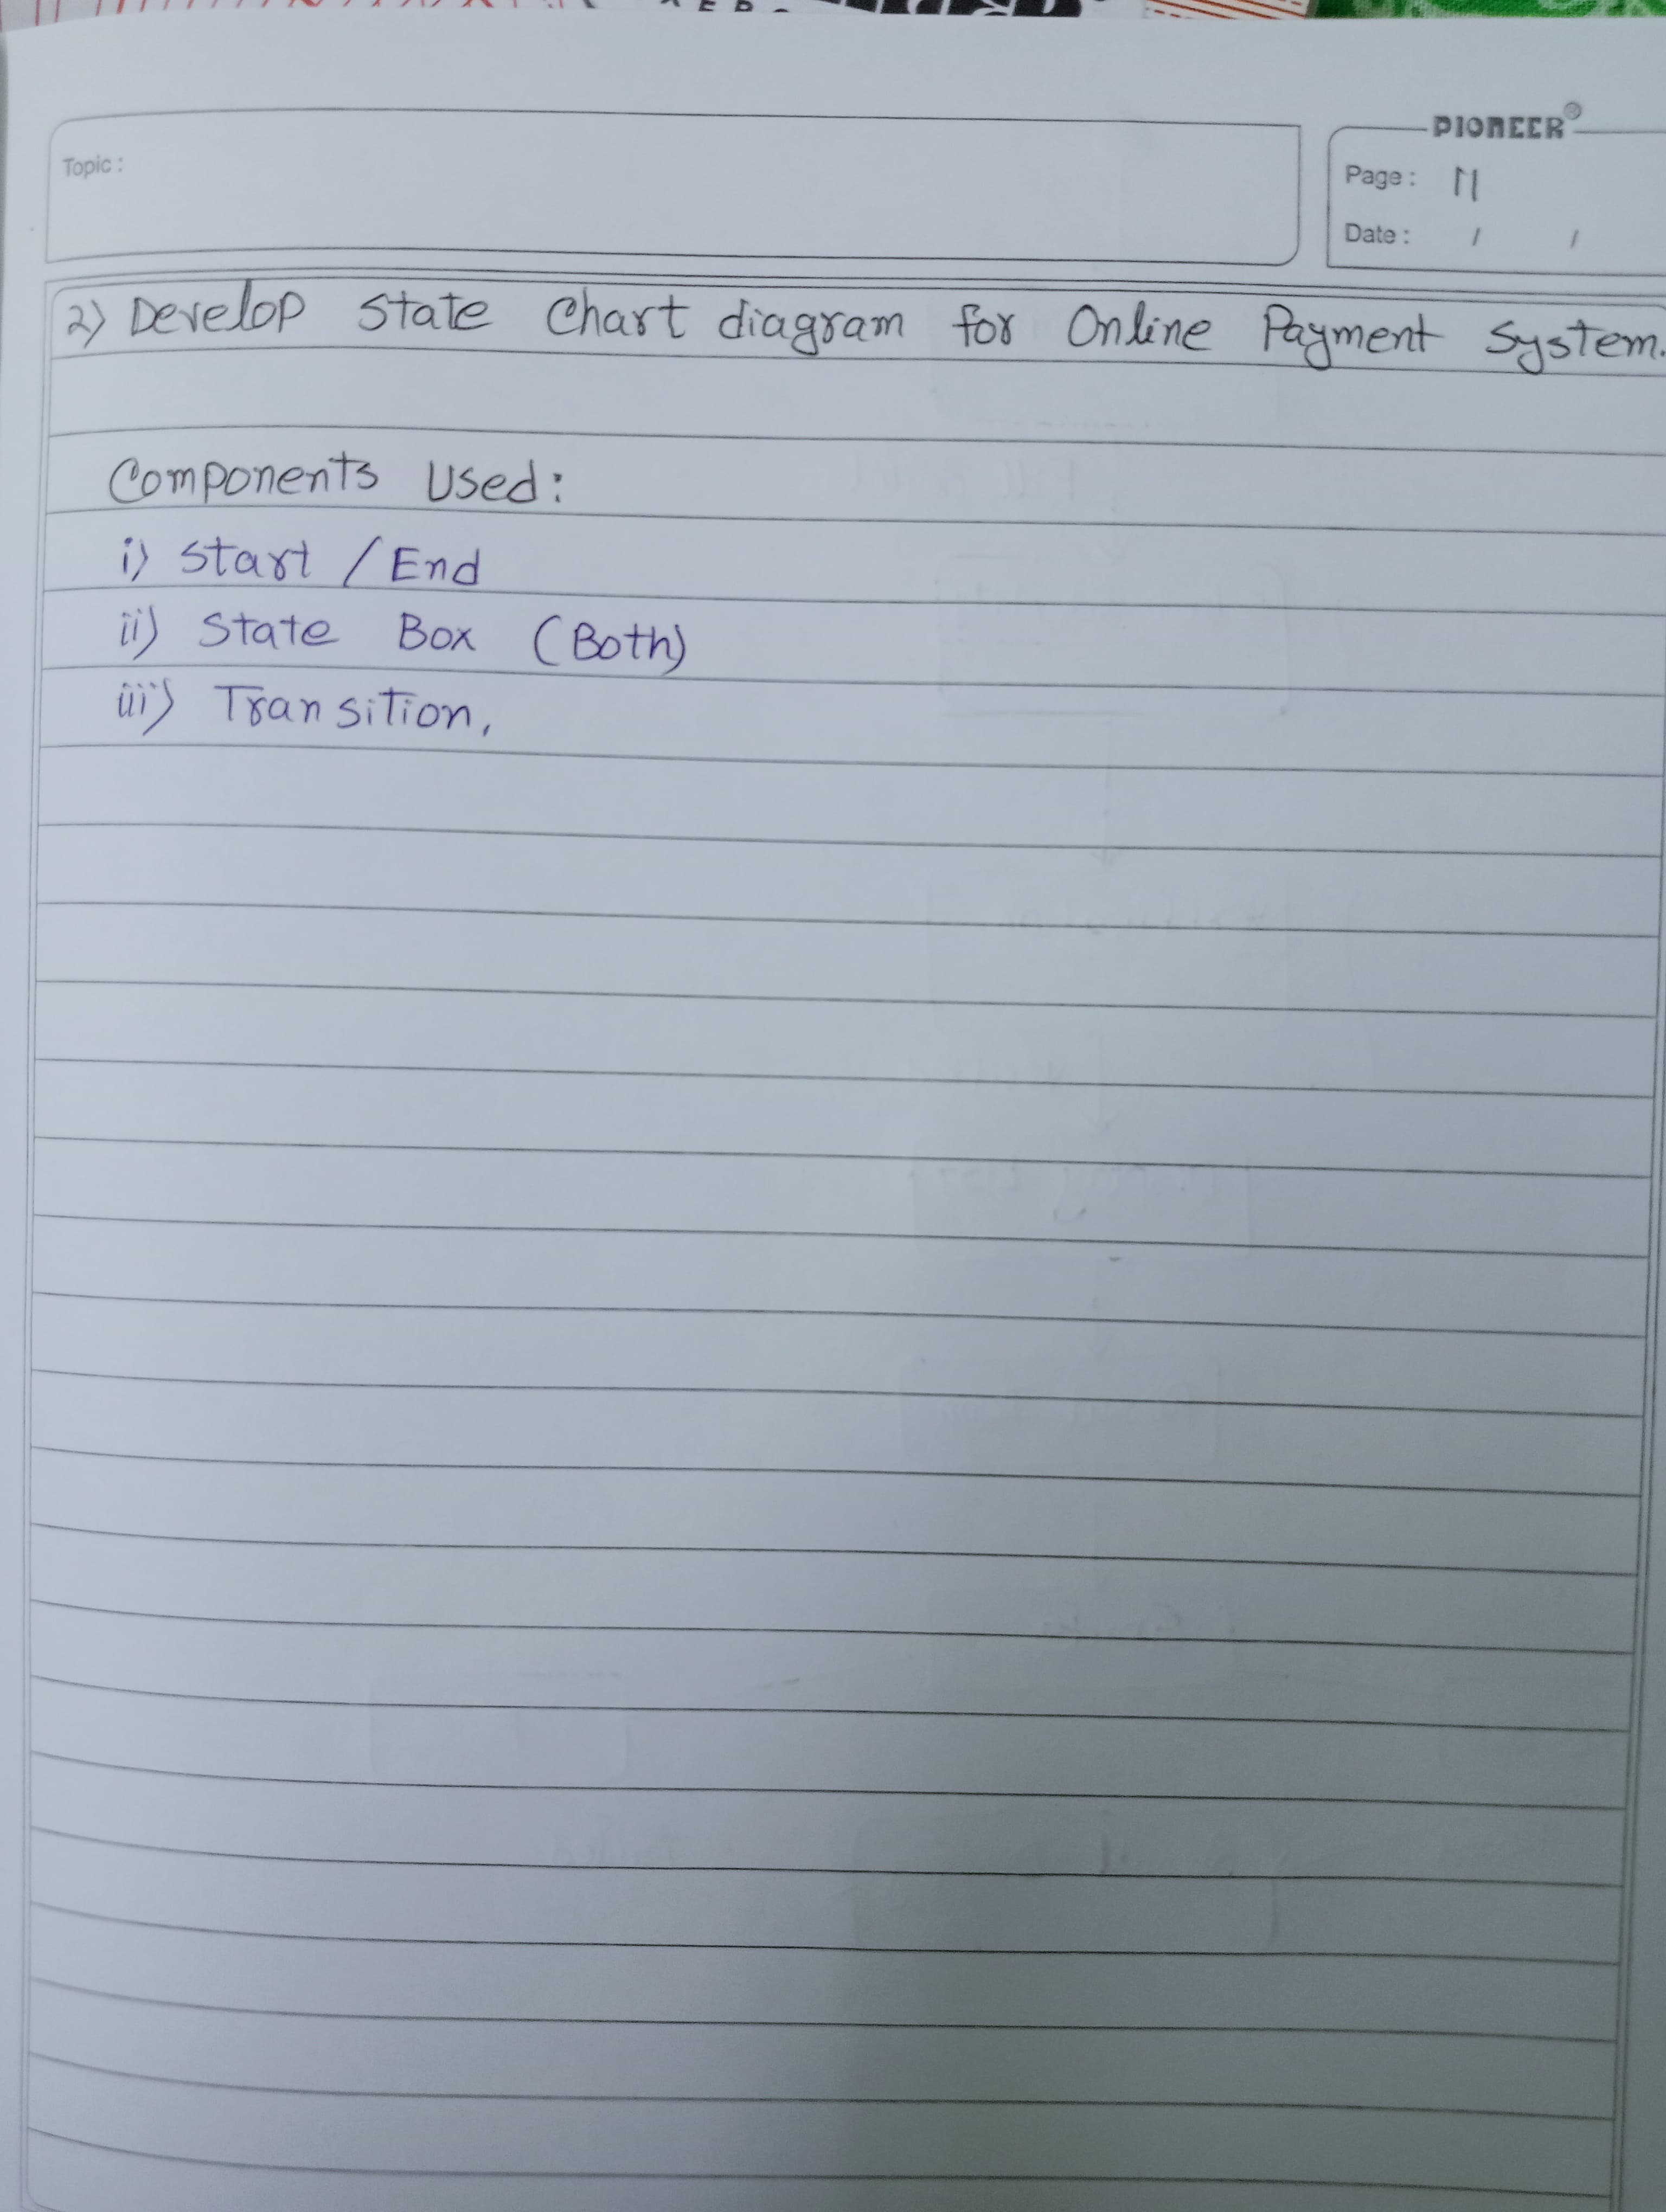 PIONEER®
Topic :
Page : 11
Date : / /
2) Develop State Chart diagram for Online Payment System.
Components Used:
i) Start / End
ii) State Box (Both)
iii) Transition,